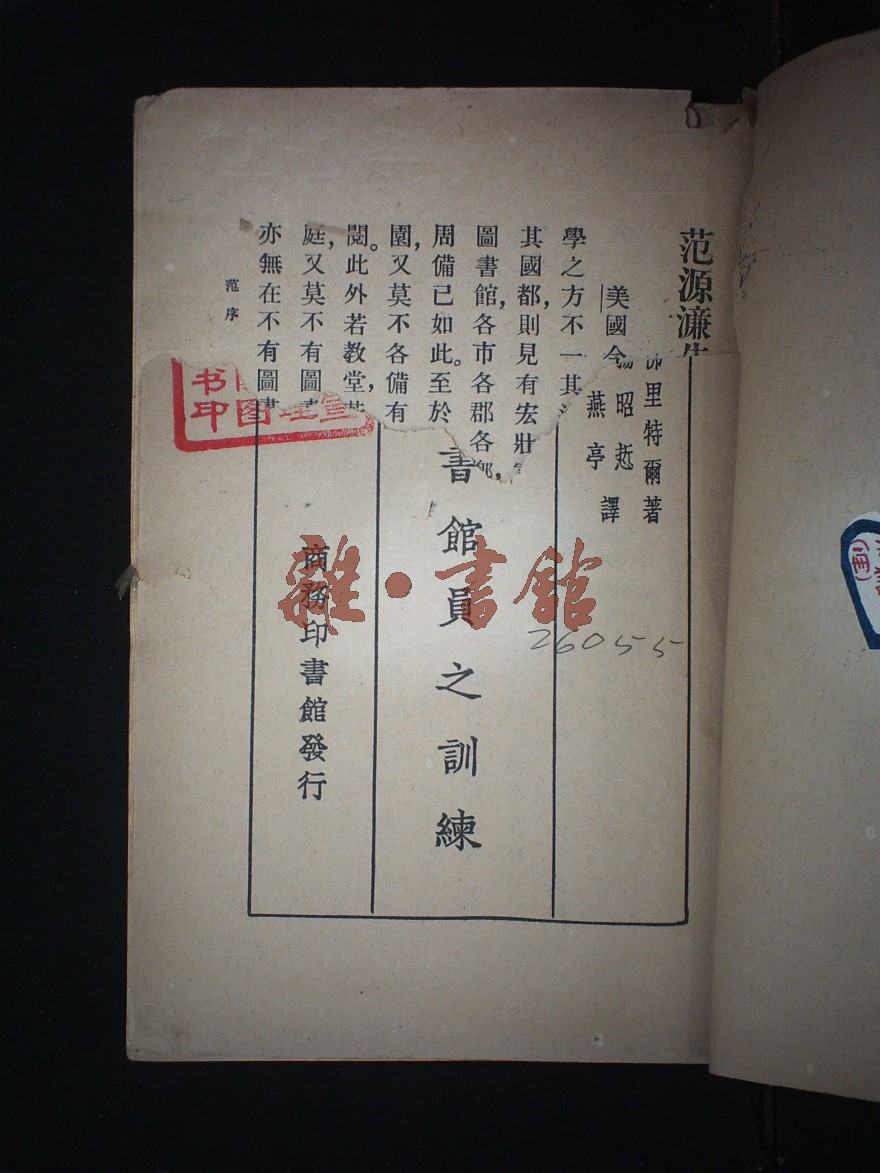 范源濂
美國
學之方不一其
其國都，則見有宏壯
圖書館，各市各郡各鄉，
周備已如此。至於
園，又莫不各備有
閱。此外若教堂，
庭，又莫不有圖書
亦無在不有圖書
范序
弗里特爾著
楊昭悊
燕亭譯
書館員之訓練
商務印書館發行
书
印图
雜·書館
26055